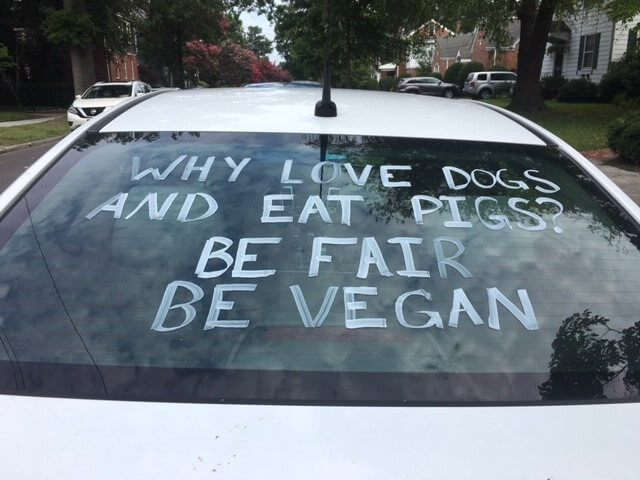 WHY LOVE DOGS
AND EAT PIGS?
BE FAIR
BE VEGAN